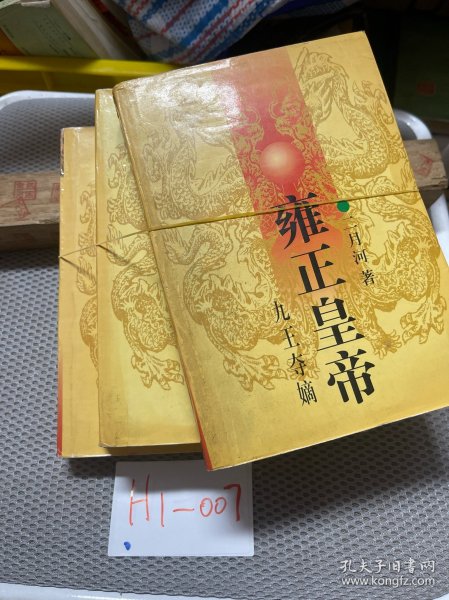 雍正皇帝
二月河著
九王夺嫡
H1-007
孔夫子旧书网
www.kongfz.com